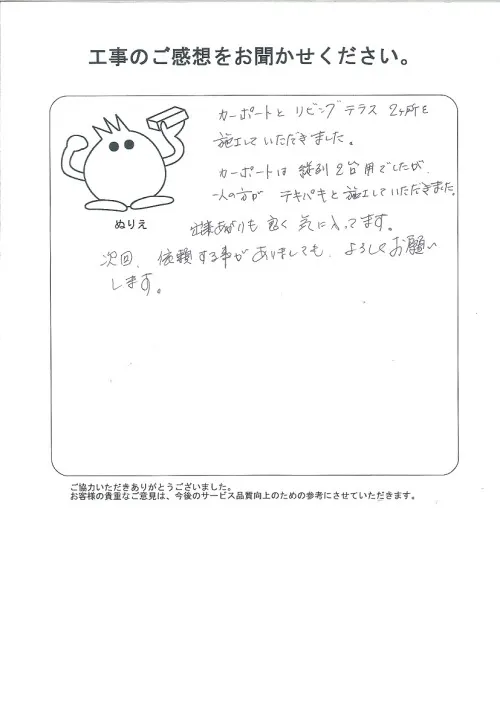 工事のご感想をお聞かせください。
カーポートと リビングテラス 2ヶ所を
施工していただきました。
カーポートは 縦列2台用でしたが、
一人の方が テキパキと施工していただきました。
仕様あがりも良く 気に入ってます。
ぬりえ
次回、依頼する事がありましても、よろしくお願い
します。
ご協力いただきありがとうございました。
お客様の貴重なご意見は、今後のサービス品質向上のための参考にさせていただきます。